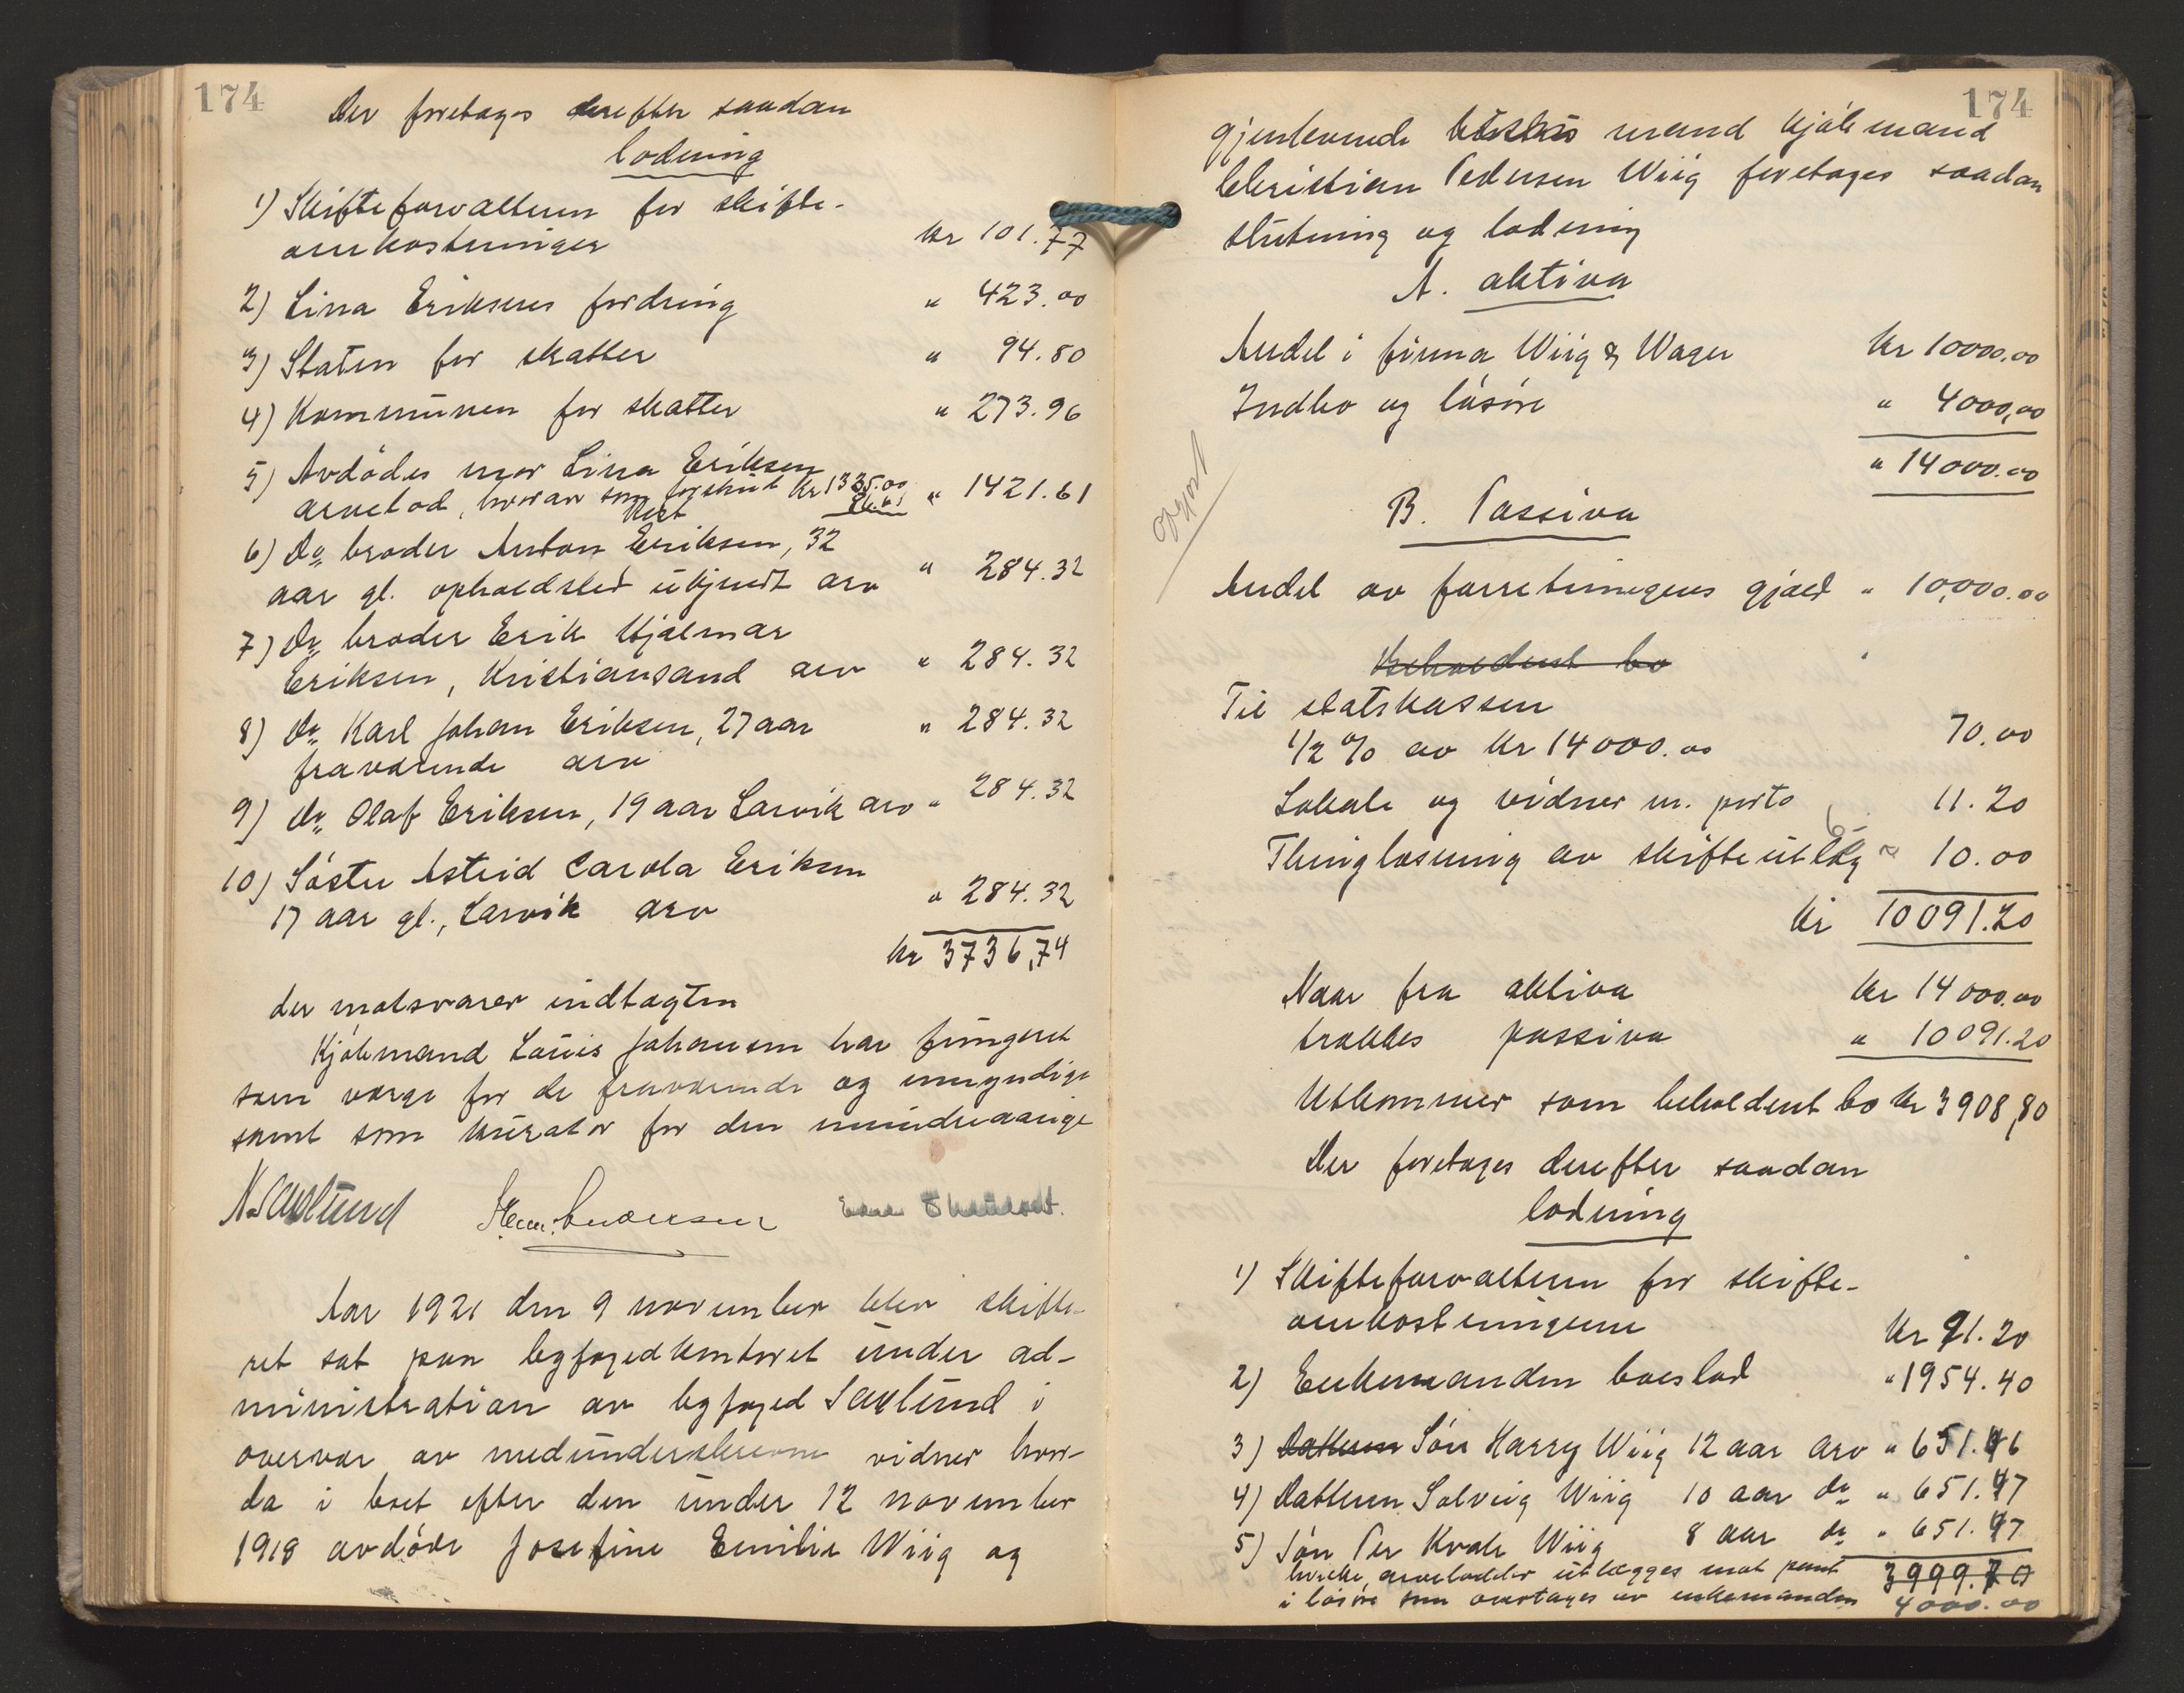 174
Der foretages derefter saadan
lodning
1) Skifteforvalteren for skifte-
omkostninger kr 101.77
2) Lina Eriksens fordring " 423.00
3) Staten for skatter " 94.80
4) Kommunen for skatter " 273.96
5) Avdødes mor Lina Eriksen
arvelod, hvorav som forskud kr 1335.00 " 1421.61
Rest 86.61
6) Do broder Anton Eriksen, 32
aar gl. opholdsted ukjendt arv " 284.32
7) Do broder Erik Hjalmar
Eriksen, Kristiansand arv " 284.32
8) do Karl Johan Eriksen, 27 aar " 284.32
fraværende arv
9) do Olaf Eriksen, 19 aar Larvik arv " 284.32
10) Søster Astrid Carola Eriksen
17 aar gl., Larvik arv " 284.32
kr 3736,74
der motsvarer indtægten
Kjøbmand Louis Johansen har fungeret
som værge for de fraværende og umyndige
samt som kurator for den mindreaarige
N. Saxlund Andersen
Aar 1921 den 9 november blev skifte-
ret sat paa byfogedkontoret under ad-
ministration av byfoged Saxlund i
overvær av medunderskrevne vidner hvor-
da i boet efter den under 12 november
1918 avdøde Josefine Emilie Wiig og
174
gjenlevende mand kjøbmand
Christian Pedersen Wiig foretages saadan
slutning og lodning
A. aktiva
Andel i firma Wiig & Wager kr 10000.00
Indbo og løsøre " 4000,00
" 14000.00
B. Passiva
Gjort
Andel av forretningens gjæld " 10,000.00
Beholdent bo
Til statskassen
1/2 % av kr 14000.00 70.00
Lokale og vidner m. porto 11.20
Thinglæsning av skifteutlæg " 10.00
kr 10091.20
Naar fra aktiva kr 14000.00
trækkes passiva " 10091.20
Utkommer som beholdent bo kr 3908,80
Der foretages derefter saadan
lodning
1) Skifteforvalteren for skifte-
omkostningerne kr 91.20
2) Enkemanden boeslod " 1954.40
3) Datteren Søn Harry Wiig 12 aar arv " 651.46
4) Datteren Solveig Wiig 10 aar do " 651.47
5) Søn Per Kvale Wiig 8 aar do " 651.47
hvilke arvelodder utlægges mot pant 3999.70
i løsøre som overtages av enkemanden 4000.00